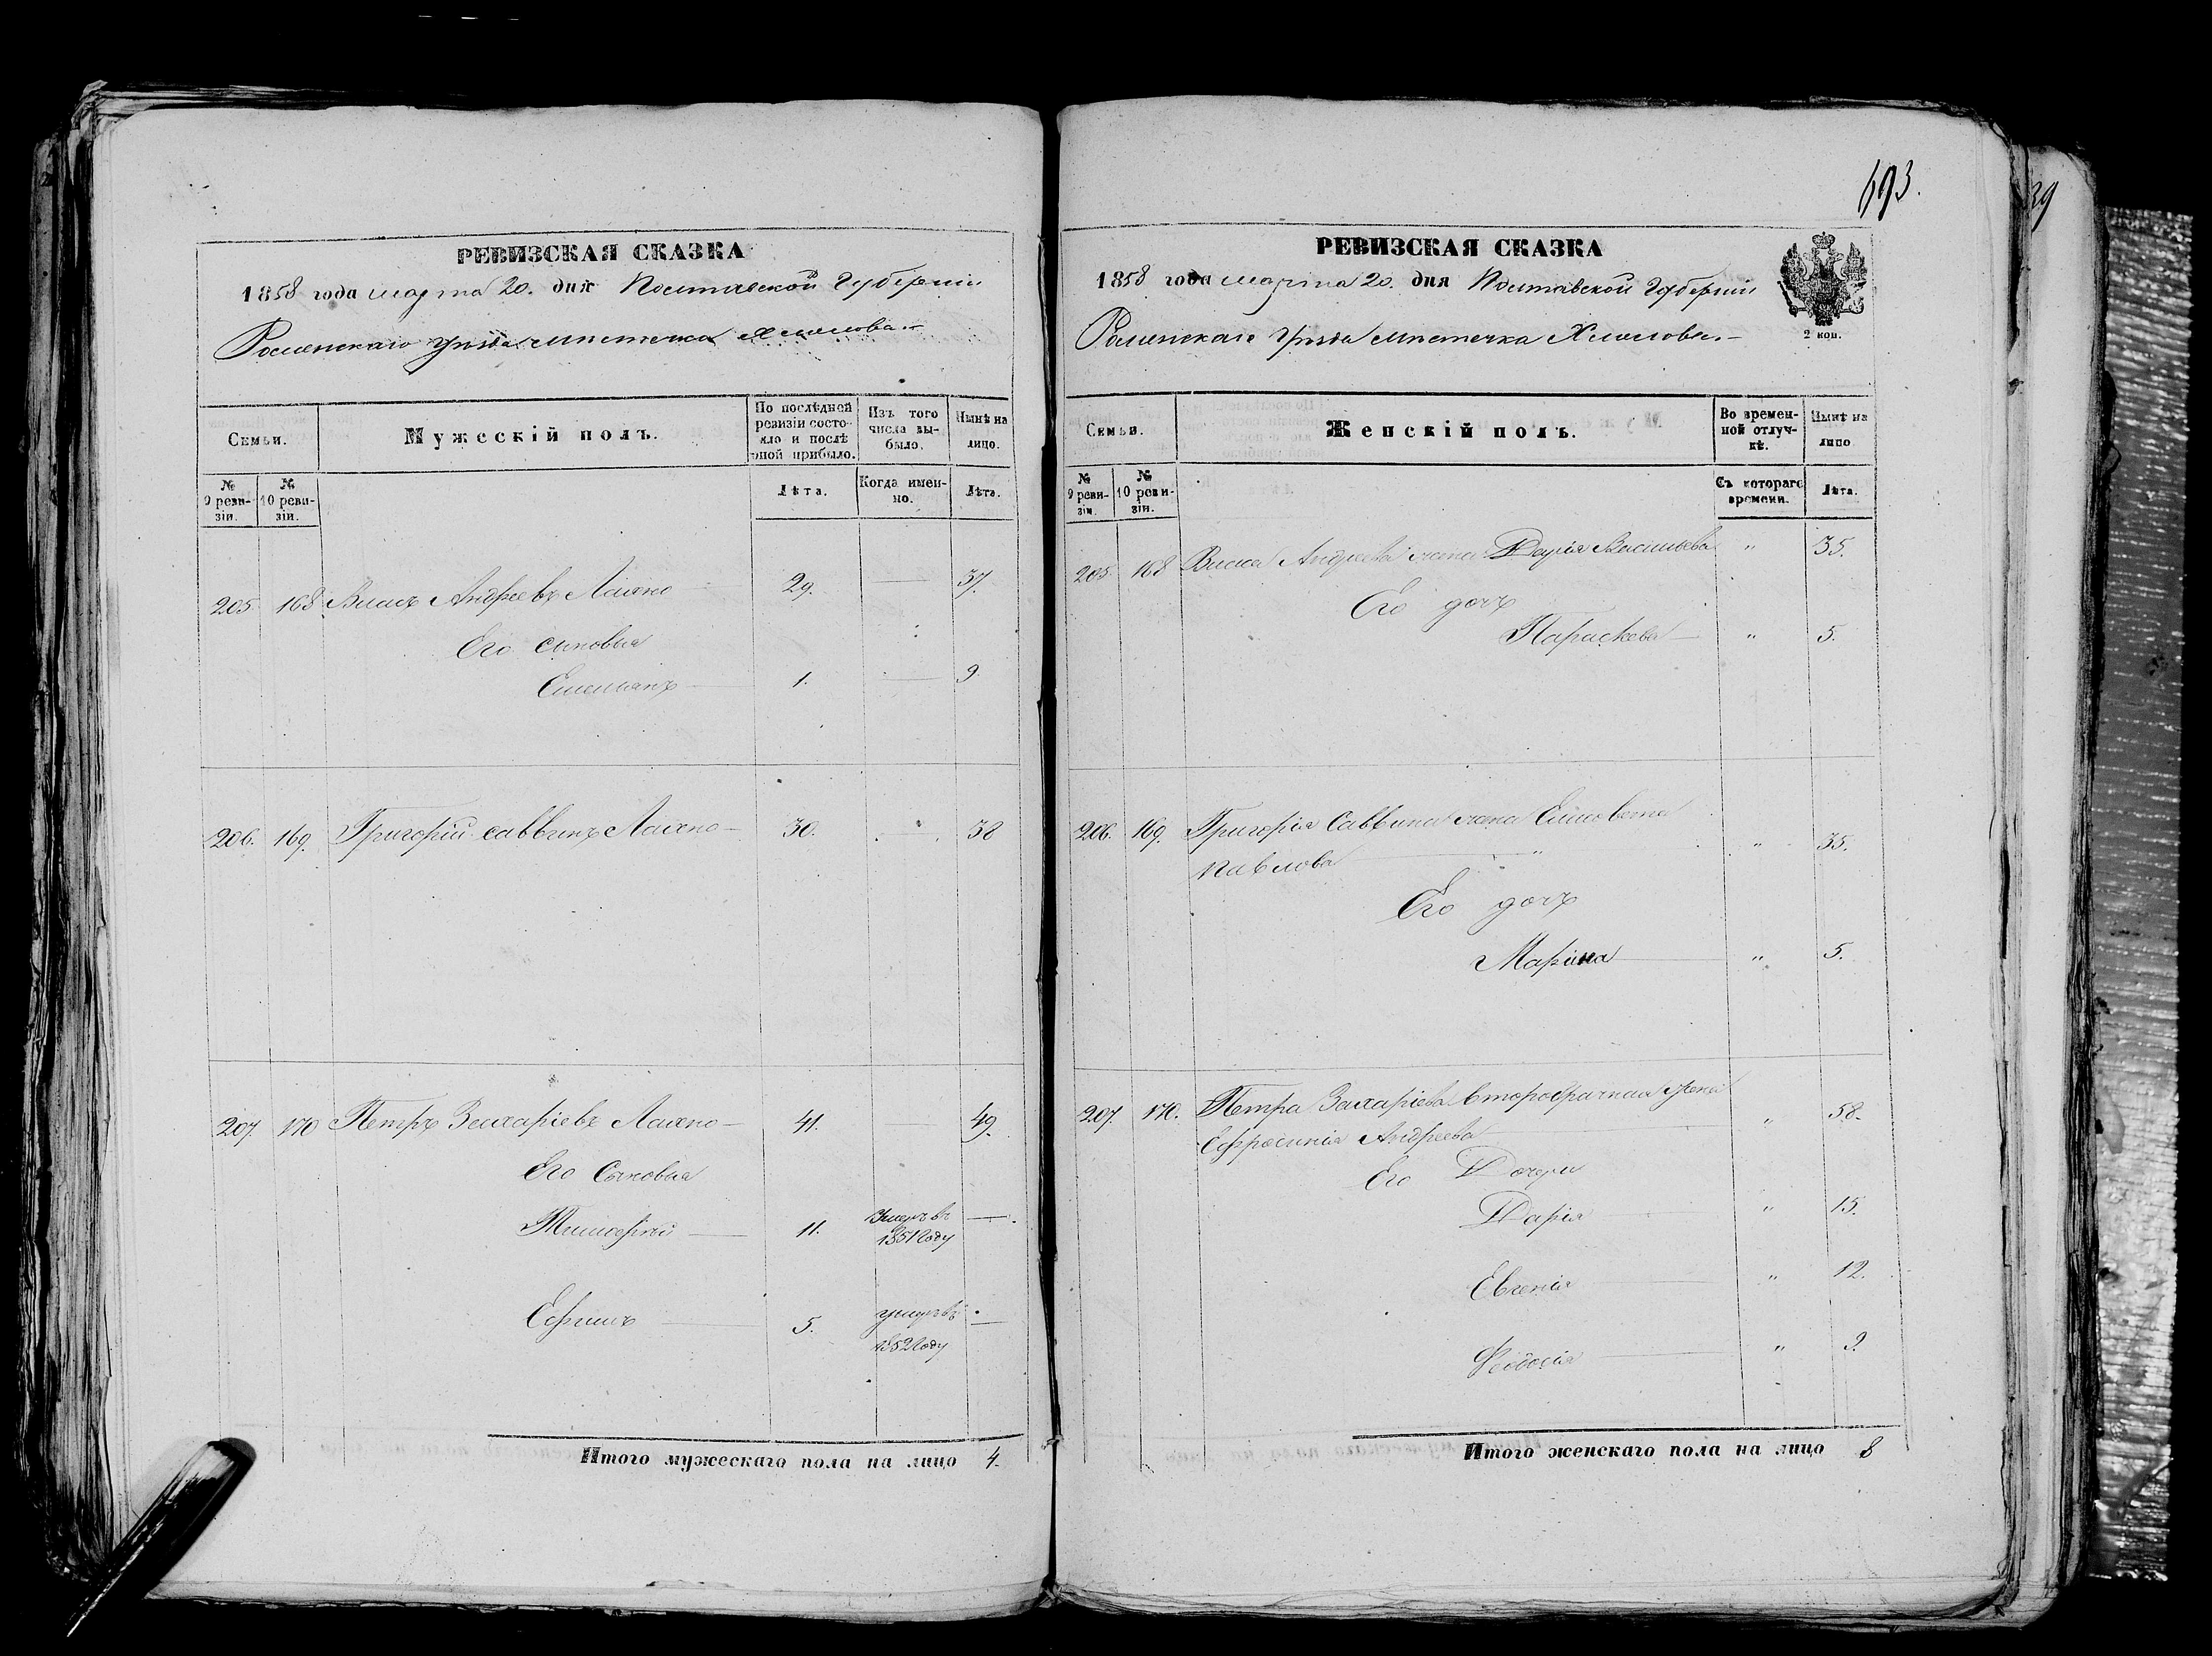 693.
39
РЕВИЗСКАЯ СКАЗКА
1858 года марта 20. дня Полтавской Губерніи
Роменскаго Уѣзда мѣстечка Хмелова.
Семьи.
Мужескій полъ.
По послѣдней ревизіи состояло и послѣ оной прибыло.
Изъ того числа выбыло.
Нынѣ на лицо.
№ 9 ревизіи.
№ 10 ревизіи.
Лѣта.
Когда именно.
Лѣта.
205. 168 Власъ Андреевъ Лахно 29. — 37.
Его сыновья
Емельянъ — 1. — 9
206. 169. Григорій Саввинъ Лахно — 30. 38
207. 170 Петръ Захаріевъ Лахно — 41. 49.
Его Сыновья
Тимофей — 11. Умеръ въ 1851 Году —
Ефимъ — 5. умеръ въ 1852 Году —
Итого мужескаго пола на лицо 4.
РЕВИЗСКАЯ СКАЗКА
1858 года марта 20. дня Полтавской Губерніи
2 коп.
Роменскаго Уѣзда мѣстечка Хмелова.
Семьи.
Женскій полъ.
Во временной отлучкѣ.
Нынѣ на лицо
№ 9 ревизіи.
№ 10 ревизіи.
Съ котораго времени.
Лѣта.
205 168 Власа Андреева жена Дарія Васильева " 35.
Его дочь
Параскева — " 5.
206. 169. Григорія Саввина жена Елисовета
Павлова " " 35.
Его дочь
Марина — " 5.
207. 170. Петра Захаріева второбрачная жена
Ефросинія Андреева " 58.
Его Дочери
Дарія " 15.
Евгенія " 12.
Феодосія " 9.
Итого женскаго пола на лицо 8